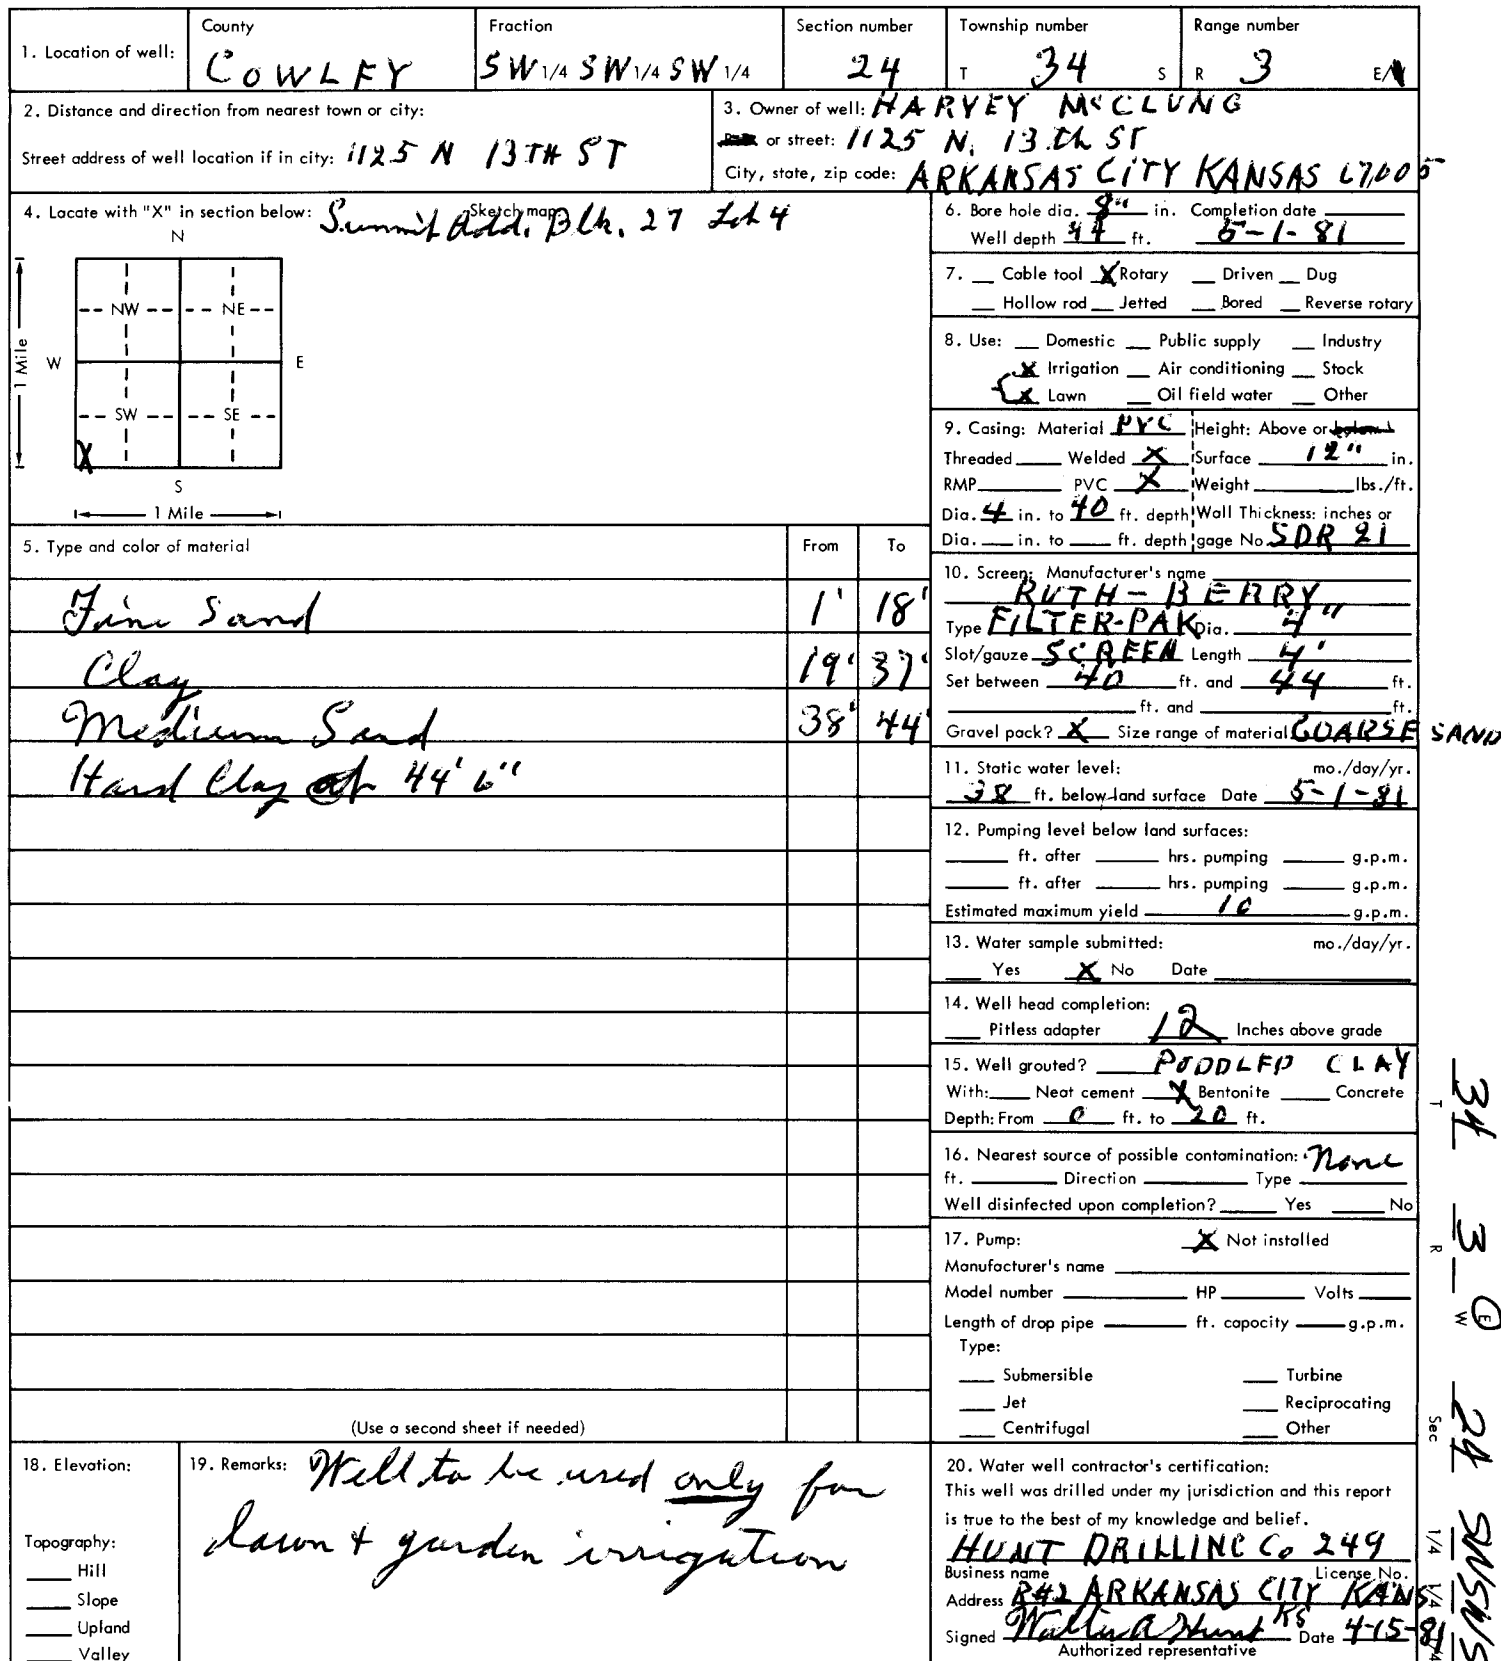 1. Location of well: County COWLEY Fraction SW 1/4 SW 1/4 SW 1/4 Section number 24 Township number T 34 S Range number R 3 E/
2. Distance and direction from nearest town or city:
Street address of well location if in city: 1125 N 13TH ST
3. Owner of well: HARVEY McCLUNG
or street: 1125 N. 13th ST
City, state, zip code: ARKANSAS CITY KANSAS 67005
4. Locate with "X" in section below: Sketch map: Summit Add. Blk. 27 Lot 4
N
NW NE
W E
1 Mile
SW SE
X
S
1 Mile
5. Type and color of material From To
Fine Sand 1' 18'
Clay 19' 37'
Medium Sand 38' 44'
Hard Clay at 44' 6"
(Use a second sheet if needed)
6. Bore hole dia. 8" in. Completion date
Well depth 44 ft. 5-1-81
7. __ Cable tool X Rotary __ Driven __ Dug
__ Hollow rod __ Jetted __ Bored __ Reverse rotary
8. Use: __ Domestic __ Public supply __ Industry
X Irrigation __ Air conditioning __ Stock
X Lawn __ Oil field water __ Other
9. Casing: Material PVC Height: Above or below
Threaded __ Welded X Surface 12" in.
RMP __ PVC X Weight __ lbs./ft.
Dia. 4 in. to 40 ft. depth Wall Thickness: inches or
Dia. __ in. to __ ft. depth gage No. SDR 21
10. Screen: Manufacturer's name
RUTH-BERRY
Type FILTER-PAK Dia. 4"
Slot/gauze SCREEN Length 4'
Set between 40 ft. and 44 ft.
__ ft. and __ ft.
Gravel pack? X Size range of material COARSE SAND
11. Static water level: mo./day/yr.
38 ft. below land surface Date 5-1-81
12. Pumping level below land surfaces:
__ ft. after __ hrs. pumping __ g.p.m.
__ ft. after __ hrs. pumping __ g.p.m.
Estimated maximum yield 10 g.p.m.
13. Water sample submitted: mo./day/yr.
__ Yes X No Date __
14. Well head completion:
__ Pitless adapter 12 Inches above grade
15. Well grouted? PUDDLED CLAY
With: __ Neat cement X Bentonite __ Concrete
Depth: From 0 ft. to 20 ft.
16. Nearest source of possible contamination: None
ft. __ Direction __ Type __
Well disinfected upon completion? __ Yes __ No
17. Pump: X Not installed
Manufacturer's name __
Model number __ HP __ Volts __
Length of drop pipe __ ft. capacity __ g.p.m.
Type:
__ Submersible __ Turbine
__ Jet __ Reciprocating
__ Centrifugal __ Other
18. Elevation:
Topography:
__ Hill
__ Slope
__ Upland
__ Valley
19. Remarks: Well to be used only for
lawn + garden irrigation
20. Water well contractor's certification:
This well was drilled under my jurisdiction and this report
is true to the best of my knowledge and belief.
HUNT DRILLING Co 249
Business name License No.
Address R#2 ARKANSAS CITY KANS
KS
Signed Walter A Hunt Date 4-15-81
Authorized representative
T 34 R 3 E W Sec 24 1/4 1/4 1/4 SWSWS